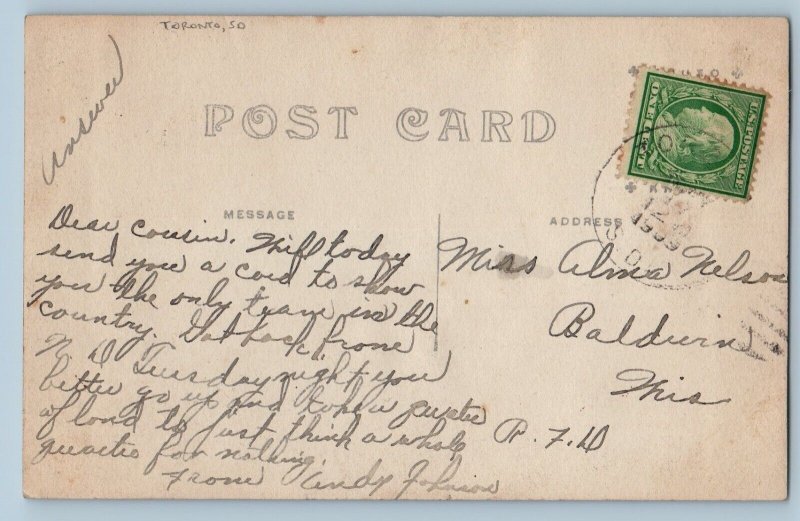 TORONTO, SD
Answered
POST CARD
ONE CENT
U.S. POSTAGE
1909
S. D.
MESSAGE
ADDRESS
Dear cousin. Will today
send you a card to show
you the only team in the
country. Got back from
N. D Tuesday night you
better go up and take a quarter
of land to just think a whole
quarter for nothing.
From Andy Johnson
Miss Alma Nelson
Baldwin
Wis
R. F. D